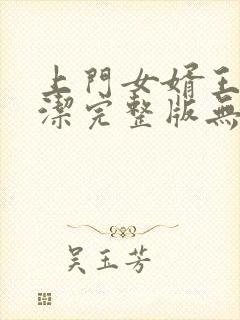 上門女婿王
潔完整版無
吳玉芳